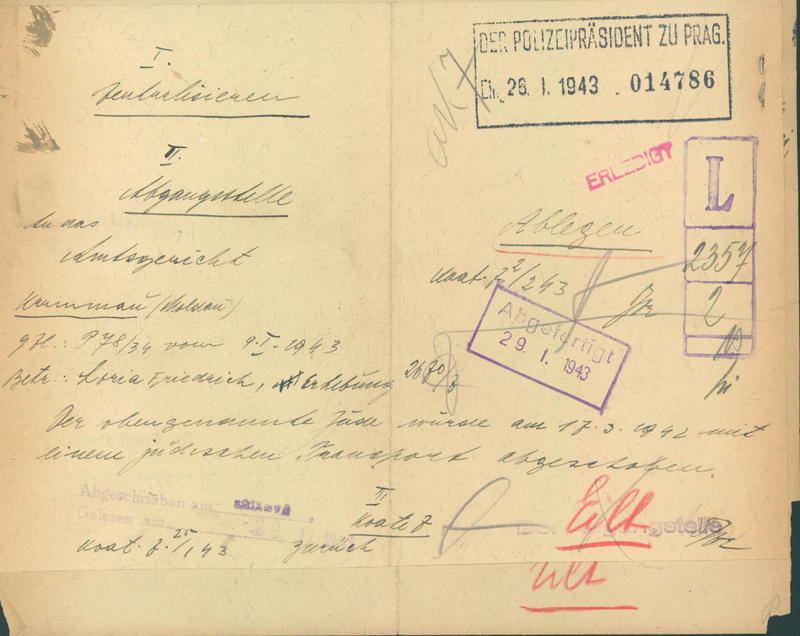 I.
Zentralisieren
II.
Abgangsstelle
An das
Amtsgericht
Krummau (Moldau)
gZl.: P 78/34 vom 9.I.1943
Betr.: Loria Friedrich, Erhebung
Der obengenannte Jude wurde am 17.3.1942 mit
einem jüdischen Transport abgeschoben.
Abgeschrieben am
Gelesen am
III
Kartei
zurück
DER POLIZEIPRÄSIDENT ZU PRAG.
Eing. 26. I. 1943 014786
ERLEDIGT
L
2357
2
Ablegen
Abgefertigt
29. I. 1943
Eilt
Eilt